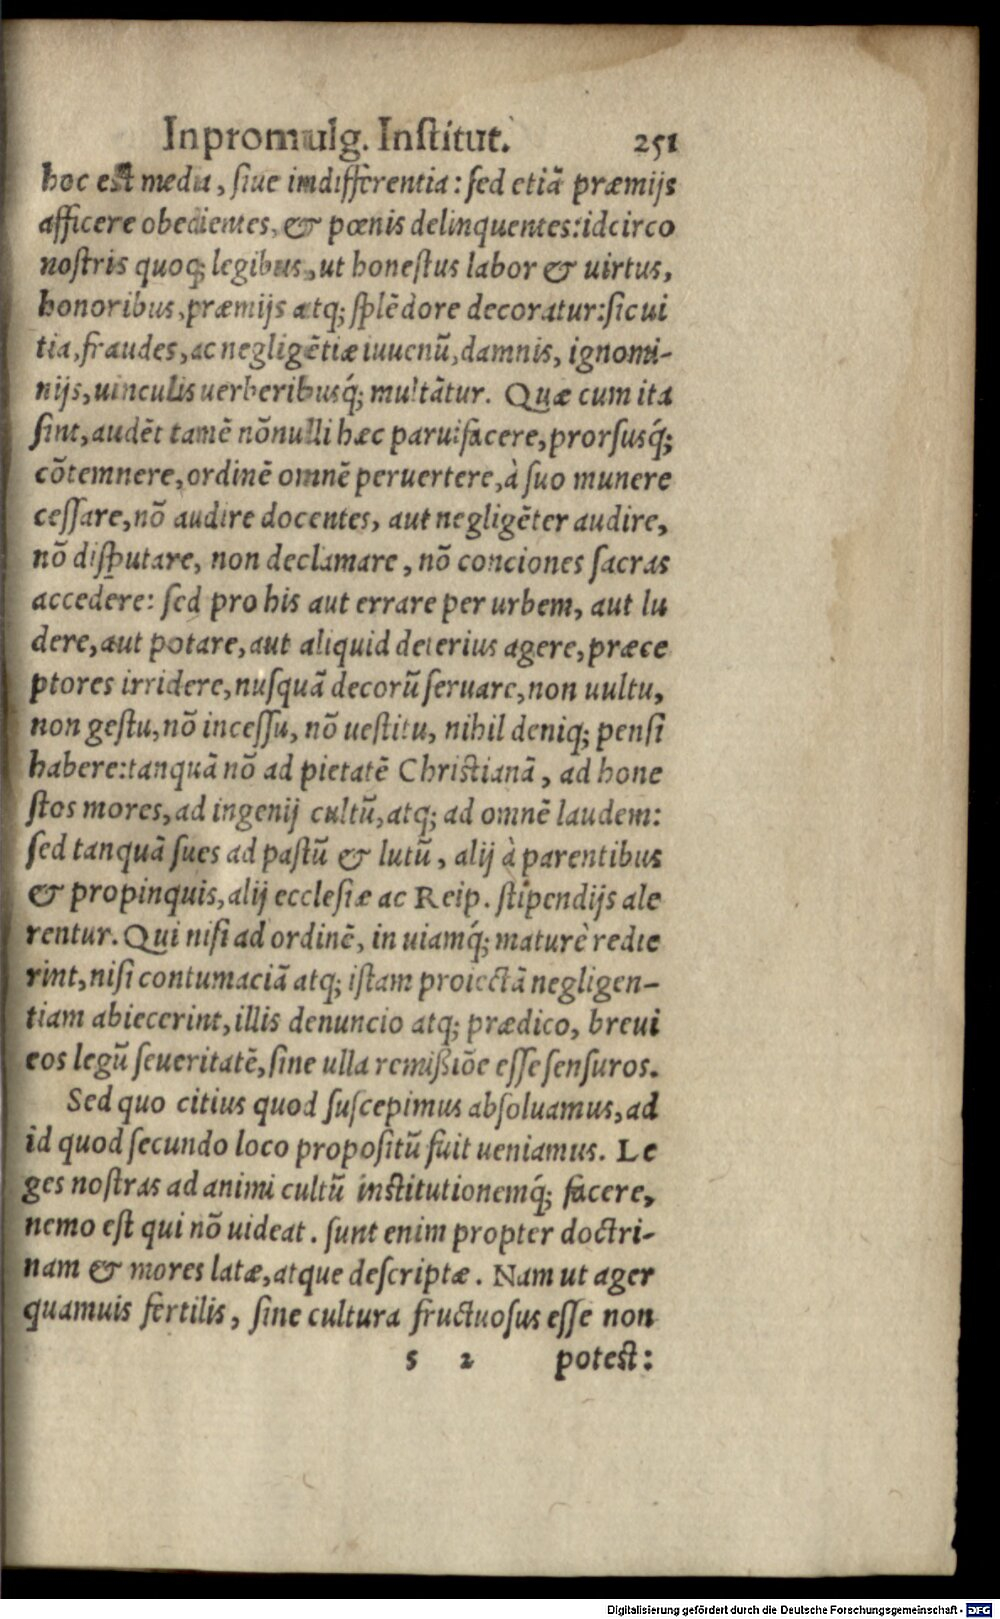 In promulg. Institut. 251
hoc est media, ſiue imdifferentia: ſed etiã præmijs
afficere obedientes, & pœnis delinquentes: idcirco
noſtris quoq; legibus, ut honeſtus labor & uirtus,
honoribus, præmijs atq; ſplẽdore decoratur: ſic ui
tia, fraudes, ac negligẽtiæ iuuenũ, damnis, ignomi-
nijs, uinculis uerberibusq́; multãtur. Quæ cum ita
ſint, audẽt tamẽ nõnulli hæc paruifacere, prorſusq́;
cõtemnere, ordinẽ omnẽ peruertere, à ſuo munere
ceſſare, nõ audire docentes, aut negligẽter audire,
nõ diſputare, non declamare, nõ conciones ſacras
accedere: ſed pro his aut errare per urbem, aut lu
dere, aut potare, aut aliquid deterius agere, præce
ptores irridere, nuſquã decorũ ſeruare, non uultu,
non geſtu, nõ inceſſu, nõ ueſtitu, nihil deniq; penſi
habere: tanquã nõ ad pietatẽ Chriſtianã, ad hone
ſtos mores, ad ingenij cultũ, atq; ad omnẽ laudem:
ſed tanquã ſues ad paſtũ & lutũ, alij à parentibus
& propinquis, alij eccleſiæ ac Reip. ſtipendijs ale
rentur. Qui niſi ad ordinẽ, in uiamq́; maturè redie
rint, niſi contumaciã atq; iſtam proiectã negligen-
tiam abiecerint, illis denuncio atq; prædico, breui
eos legũ ſeueritatẽ, ſine ulla remißiõe eſſe ſenſuros.
Sed quo citius quod ſuſcepimus abſoluamus, ad
id quod ſecundo loco propoſitũ fuit ueniamus. Le
ges noſtras ad animi cultũ inſtitutionemq́; facere,
nemo eſt qui nõ uideat. ſunt enim propter doctri-
nam & mores latæ, atque deſcriptæ. Nam ut ager
quamuis fertilis, ſine cultura fructuoſus eſſe non
s 2 poteſt:
Digitalisierung gefördert durch die Deutsche Forschungsgemeinschaft - DFG